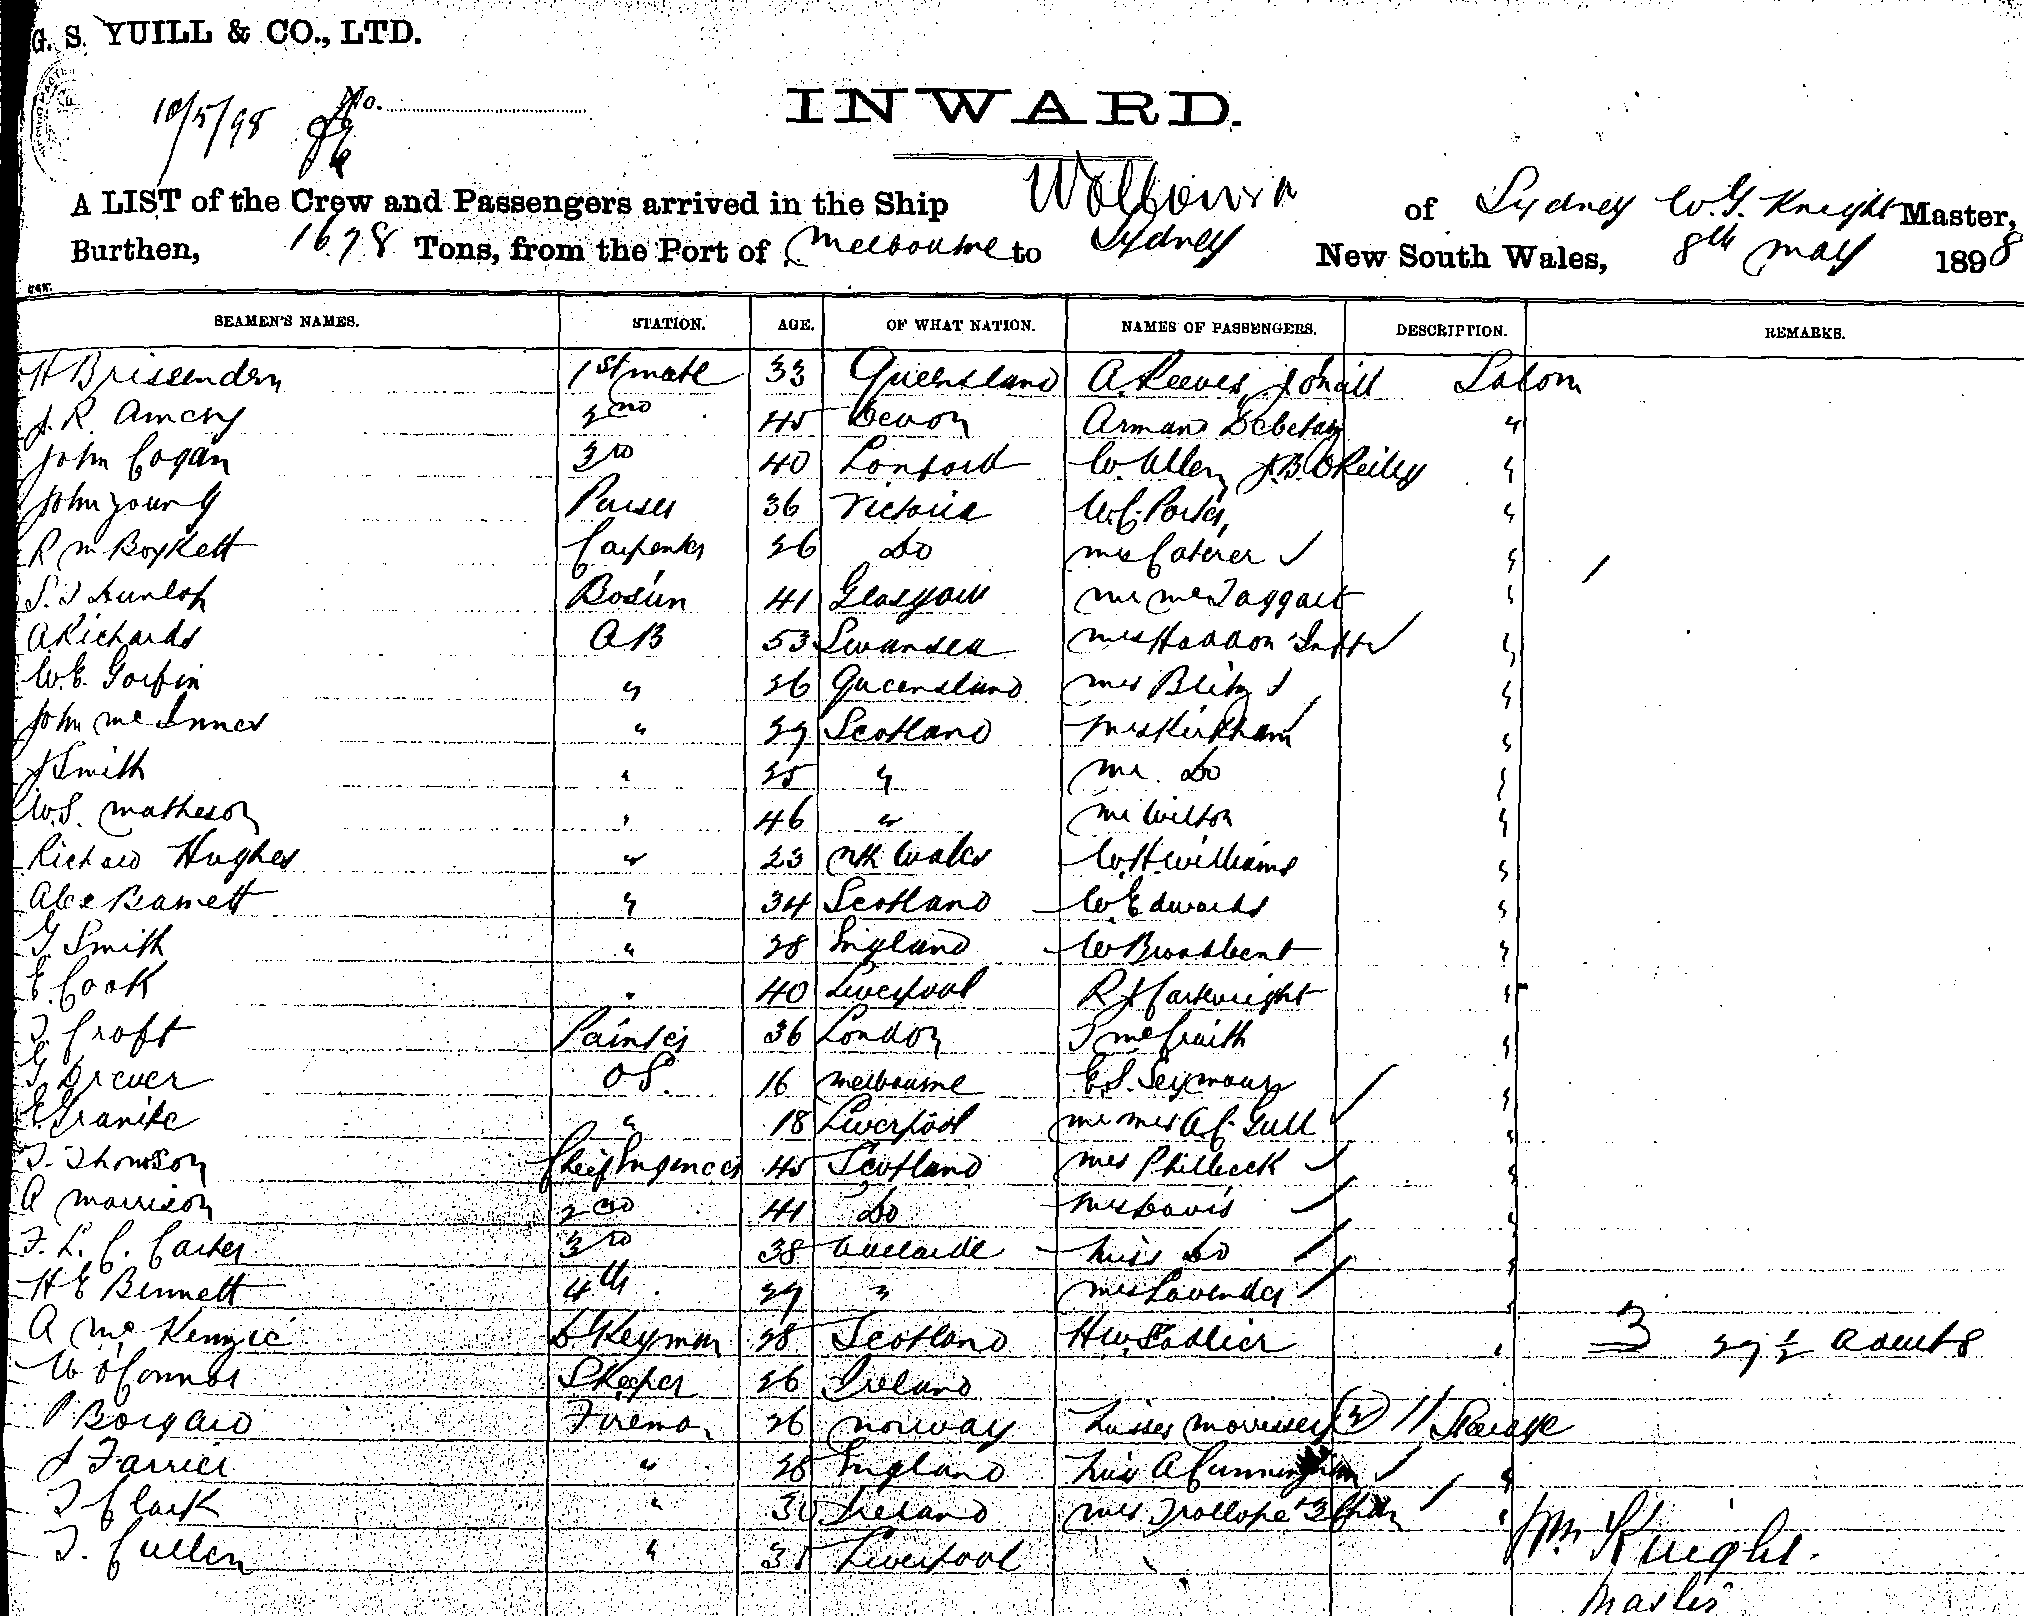 G. S. YUILL & CO., LTD.
10/5/98 No.
INWARD.
A LIST of the Crew and Passengers arrived in the Ship Wollowra of Sydney W. G. Knight Master,
Burthen, 1678 Tons, from the Port of Melbourne to Sydney New South Wales, 8th May 1898
SEAMEN'S NAMES. STATION. AGE. OF WHAT NATION. NAMES OF PASSENGERS. DESCRIPTION. REMARKS.
H Brissenden 1st mate 33 Queensland A. Reeves, J O'Neill Saloon
J. R. Amery 2nd 45 Devon Armand "
John Cogan 3rd 40 Longford W. Allen, J. B. O'Reilly "
John Young Purser 36 Victoria W. C. Porter, "
R M Boykett Carpenter 26 Do Mrs Caterer "
S. J Dunlop Bosun 41 Glasgow Mr McTaggart "
A Richards AB 53 Swansea Mrs Haddon Inft "
W. E. Gorfin " 26 Queensland Mrs Blitz "
John McInnes " 29 Scotland Mrs Kirkham "
J Smith " 25 " Mr. Do "
W. S. Matheson " 46 " Mr Wilton "
Richard Hughes " 23 Nth Wales W. H. Williams "
Alex Barnett " 34 Scotland W. Edwards "
G Smith " 28 England W Broadbent "
E. Cook " 40 Liverpool R J Cartwright "
T. Croft Painter 36 London T McCraith "
G Drever OS. 16 Melbourne E. S. Seymour "
E Granite " 18 Liverpool Mr Mrs A. C. Gull "
T. Thomson Chief Engineer 45 Scotland Mrs Philbeck "
A Morrison 2nd 41 Do Mrs Davis "
F. L. C. Carter 3rd 38 Adelaide Miss Do "
H E Bennett 4th 29 " Mrs Lavender "
A McKenzie DKeyman 28 Scotland H. W. Sadlier " 3 29 ½ adults
W O'Connor SKeeper 26 Ireland
P Borgard Fireman 26 Norway Misses Morrissey (2) 11 Steerage
J Farrier " 28 England Miss A Cunningham "
T Clark " 30 Ireland Mrs Trollope & 2 Chdn "
T. Cullen " 31 Liverpool
Wm Knight.
Master